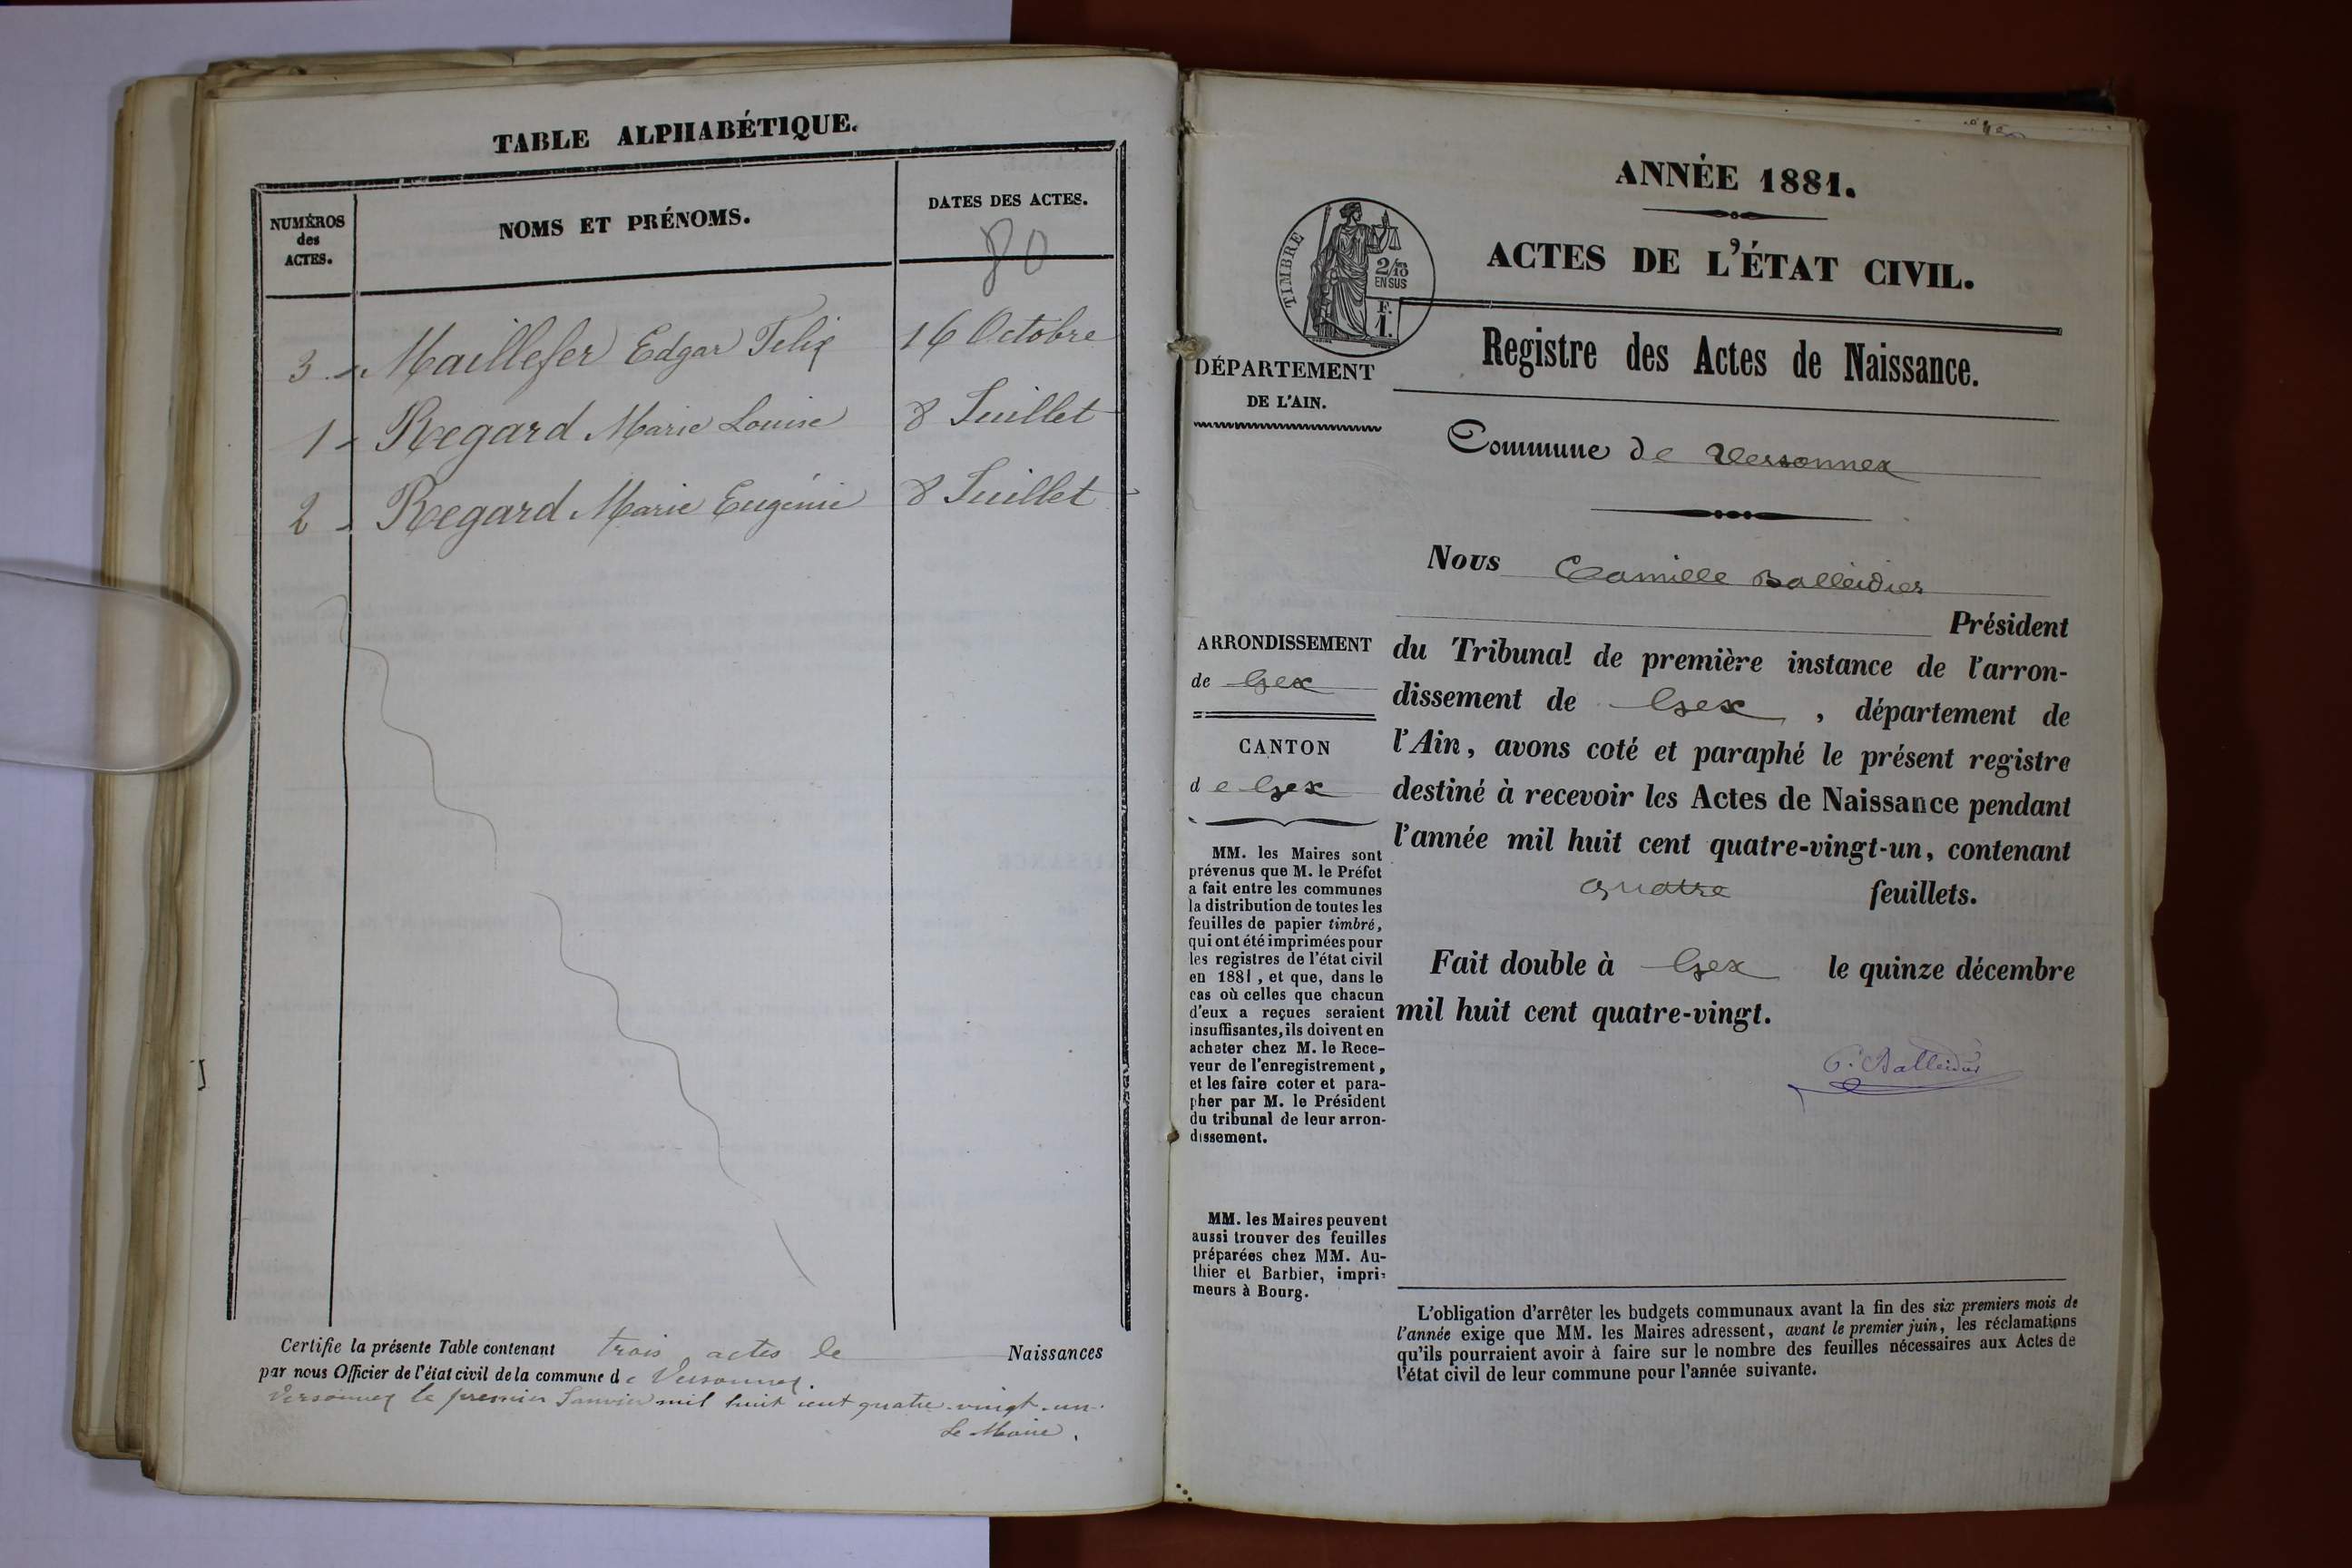 TABLE ALPHABÉTIQUE.
NUMÉROS
des
ACTES.
NOMS ET PRÉNOMS.
DATES DES ACTES.
80
3 Maillefer Edgar Felix 16 Octobre
1 Regard Marie Louise 8 Juillet
2 Regard Marie Eugénie 8 Juillet
Certifie la présente Table contenant trois actes de Naissances
par nous Officier de l'état civil de la commune de Versonnex.
Versonnex le premier Janvier mil huit cent quatre-vingt-un.
Le Maire.
ANNÉE 1881.
ACTES DE L'ÉTAT CIVIL.
TIMBRE
2/10
EN SUS
F.
1.
Registre des Actes de Naissance.
DÉPARTEMENT
DE L'AIN.
Commune de Versonnex
Nous Camille Balleidier
Président
du Tribunal de première instance de l'arron-
dissement de Gex, département de
l'Ain, avons coté et paraphé le présent registre
destiné à recevoir les Actes de Naissance pendant
l'année mil huit cent quatre-vingt-un, contenant
quatre feuillets.
Fait double à Gex le quinze décembre
mil huit cent quatre-vingt.
C. Balleidier
ARRONDISSEMENT
de Gex
CANTON
de Gex
MM. les Maires sont
prévenus que M. le Préfet
a fait entre les communes
la distribution de toutes les
feuilles de papier timbré,
qui ont été imprimées pour
les registres de l'état civil
en 1881, et que, dans le
cas où celles que chacun
d'eux a reçues seraient
insuffisantes, ils doivent en
acheter chez M. le Rece-
veur de l'enregistrement,
et les faire coter et para-
pher par M. le Président
du tribunal de leur arron-
dissement.
MM. les Maires peuvent
aussi trouver des feuilles
préparées chez MM. Au-
thier et Barbier, impri-
meurs à Bourg.
L'obligation d'arrêter les budgets communaux avant la fin des six premiers mois de
l'année exige que MM. les Maires adressent, avant le premier juin, les réclamations
qu'ils pourraient avoir à faire sur le nombre des feuilles nécessaires aux Actes de
l'état civil de leur commune pour l'année suivante.